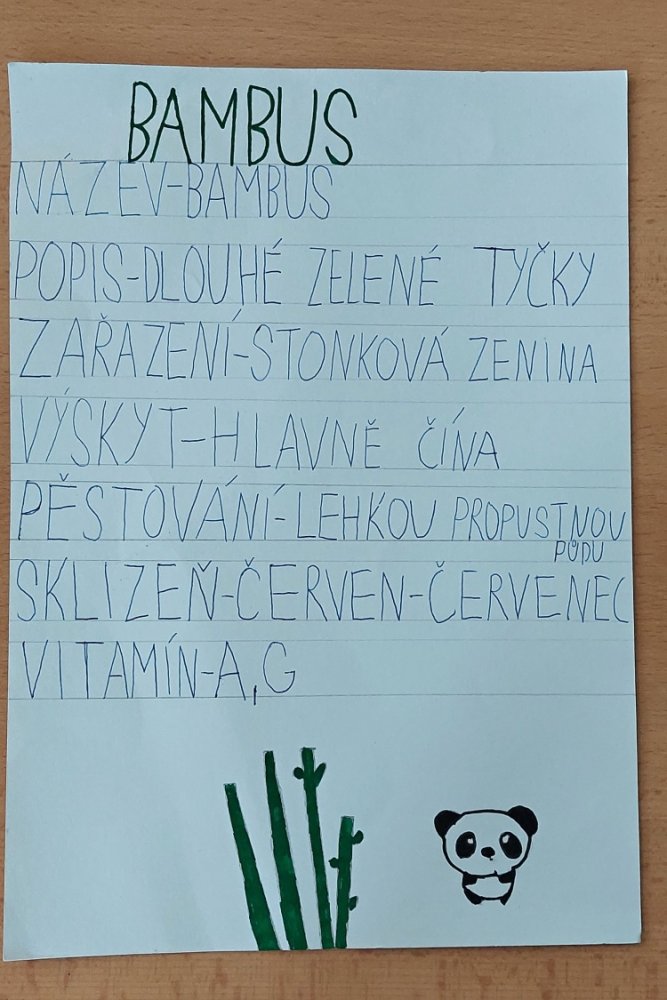 BAMBUS
NÁZEV-BAMBUS
POPIS-DLOUHÉ ZELENÉ TYČKY
ZAŘAZENÍ-STONKOVÁ ZENINA
VÝSKYT-HLAVNĚ ČÍNA
PĚSTOVÁNÍ-LEHKOU PROPUSTNOU
PŮDU
SKLIZEŇ-ČERVEN-ČERVENEC
VITAMÍN-A,G